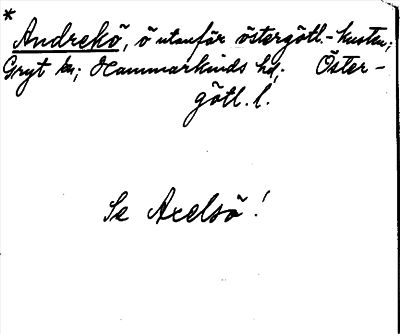 *
Andrekö, ö utanför östergötl.-kusten;
Gryt sn; Hammarkinds hd, Öster-
götl. l.
Se Axelsö!